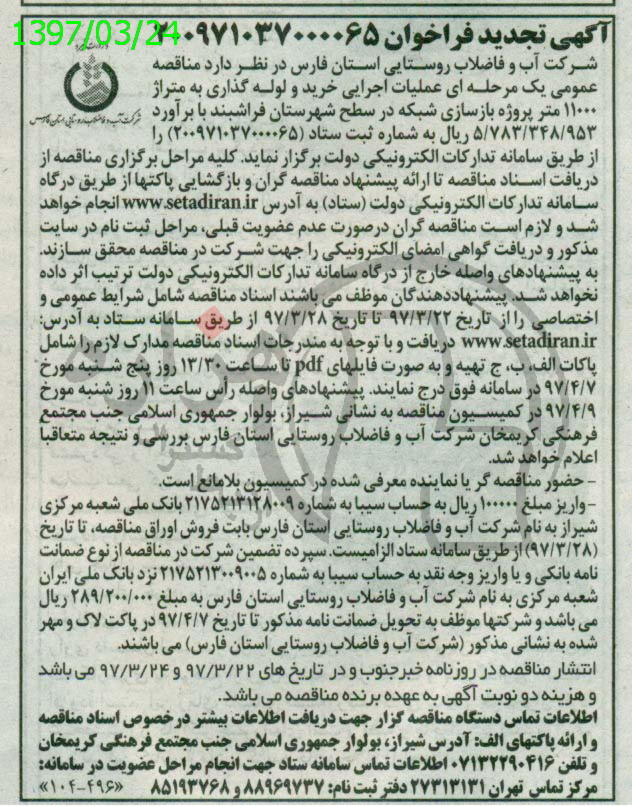 1397/03/24
آگهی تجدید فراخوان ۲۰۰۹۷۱۰۳۷۰۰۰۰۶۵
شرکت آب و فاضلاب روستایی استان فارس در نظر دارد مناقصه
عمومی یک مرحله ای عملیات اجرایی خرید و لوله گذاری به متراژ
۱۱۰۰۰ متر پروژه بازسازی شبکه در سطح شهرستان فراشبند با برآورد
شرکت آب و فاضلاب روستایی استان فارس
۵/۷۸۳/۳۴۸/۹۵۳ ریال به شماره ثبت ستاد (۲۰۰۹۷۱۰۳۷۰۰۰۰۶۵) را
از طریق سامانه تدارکات الکترونیکی دولت برگزار نماید. کلیه مراحل برگزاری مناقصه از
دریافت اسناد مناقصه تا ارائه پیشنهاد مناقصه گران و بازگشایی پاکتها از طریق درگاه
سامانه تدارکات الکترونیکی دولت (ستاد) به آدرس www.setadiran.ir انجام خواهد
شد و لازم است مناقصه گران درصورت عدم عضویت قبلی، مراحل ثبت نام در سایت
مذکور و دریافت گواهی امضای الکترونیکی را جهت شرکت در مناقصه محقق سازند.
به پیشنهادهای واصله خارج از درگاه سامانه تدارکات الکترونیکی دولت ترتیب اثر داده
نخواهد شد. پیشنهاددهندگان موظف می باشند اسناد مناقصه شامل شرایط عمومی و
اختصاصی را از تاریخ ۹۷/۳/۲۲ تا تاریخ ۹۷/۳/۲۸ از طریق سامانه ستاد به آدرس:
www.setadiran.ir دریافت و با توجه به مندرجات اسناد مناقصه مدارک لازم را شامل
پاکات الف، ب، ج تهیه و به صورت فایلهای pdf تا ساعت ۱۳/۳۰ روز پنج شنبه مورخ
۹۷/۴/۷ در سامانه فوق درج نمایند. پیشنهادهای واصله رأس ساعت ۱۱ روز شنبه مورخ
۹۷/۴/۹ در کمیسیون مناقصه به نشانی شیراز، بولوار جمهوری اسلامی جنب مجتمع
فرهنگی کریمخان شرکت آب و فاضلاب روستایی استان فارس بررسی و نتیجه متعاقبا
اعلام خواهد شد.
- حضور مناقصه گر یا نماینده معرفی شده در کمیسیون بلامانع است.
- واریز مبلغ ۱۰۰۰۰۰ ریال به حساب سیبا به شماره ۲۱۷۵۲۱۳۱۲۸۰۰۹ بانک ملی شعبه مرکزی
شیراز به نام شرکت آب و فاضلاب روستایی استان فارس بابت فروش اوراق مناقصه، تا تاریخ
(۹۷/۳/۲۸) از طریق سامانه ستاد الزامیست. سپرده تضمین شرکت در مناقصه از نوع ضمانت
نامه بانکی و یا واریز وجه نقد به حساب سیبا به شماره ۲۱۷۵۲۱۳۰۰۹۰۰۵ نزد بانک ملی ایران
شعبه مرکزی به نام شرکت آب و فاضلاب روستایی استان فارس به مبلغ ۲۸۹/۲۰۰/۰۰۰ ریال
می باشد و شرکتها موظف به تحویل ضمانت نامه مذکور تا تاریخ ۹۷/۴/۷ در پاکت لاک و مهر
شده به نشانی مذکور (شرکت آب و فاضلاب روستایی استان فارس) می باشند.
انتشار مناقصه در روزنامه خبرجنوب و در تاریخ های ۹۷/۳/۲۲ و ۹۷/۳/۲۴ می باشد
و هزینه دو نوبت آگهی به عهده برنده مناقصه می باشد.
اطلاعات تماس دستگاه مناقصه گزار جهت دریافت اطلاعات بیشتر درخصوص اسناد مناقصه
و ارائه پاکتهای الف: آدرس شیراز، بولوار جمهوری اسلامی جنب مجتمع فرهنگی کریمخان
و تلفن ۰۷۱۳۲۲۹۰۴۱۶ اطلاعات تماس سامانه ستاد جهت انجام مراحل عضویت در سامانه:
مرکز تماس تهران ۲۷۳۱۳۱۳۱ دفتر ثبت نام: ۸۸۹۶۹۷۳۷ و ۸۵۱۹۳۷۶۸
«۱۰۴-۴۹۶»